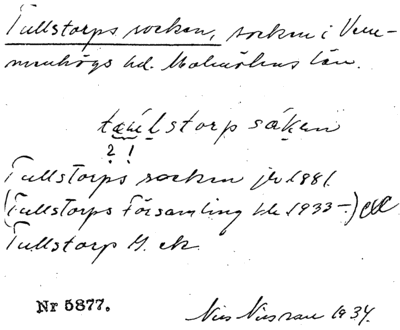 Tullstorps socken, socken i Vem-
menhögs hd. Malmöhus län.
taulstorp såken
2 !
Tullstorps socken jb 1881.
(Tullstorps församling bl. 1933-)
Tullstorp H. ek.
Nr 5877.
Nils 1934.